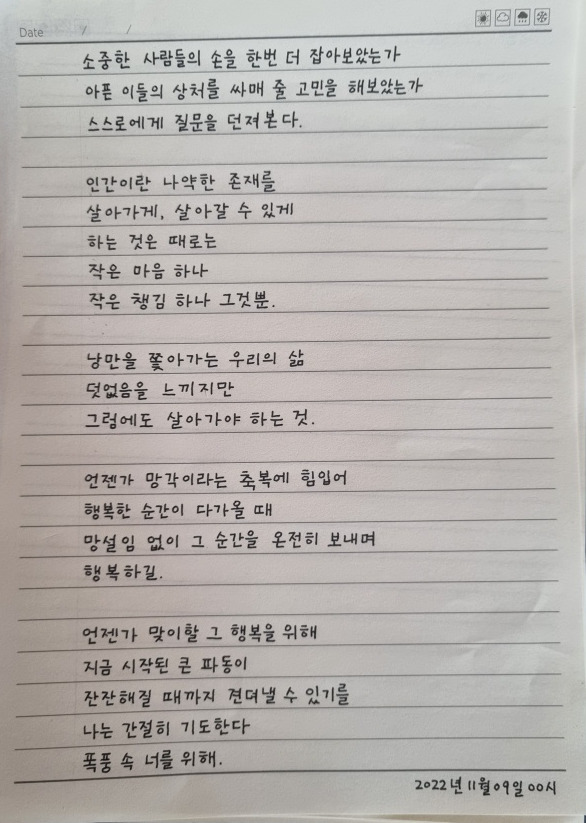 Date / /
소중한 사람들의 손을 한번 더 잡아보았는가
아픈 이들의 상처를 싸매 줄 고민을 해보았는가
스스로에게 질문을 던져본다.
인간이란 나약한 존재를
살아가게, 살아갈 수 있게
하는 것은 때로는
작은 마음 하나
작은 챙김 하나 그것뿐.
낭만을 쫓아가는 우리의 삶
덧없음을 느끼지만
그럼에도 살아가야 하는 것.
언젠가 망각이라는 축복에 힘입어
행복한 순간이 다가올 때
망설임 없이 그 순간을 온전히 보내며
행복하길.
언젠가 맞이할 그 행복을 위해
지금 시작된 큰 파동이
잔잔해질 때까지 견뎌낼 수 있기를
나는 간절히 기도한다
폭풍 속 너를 위해.
2022년 11월 09일 00시